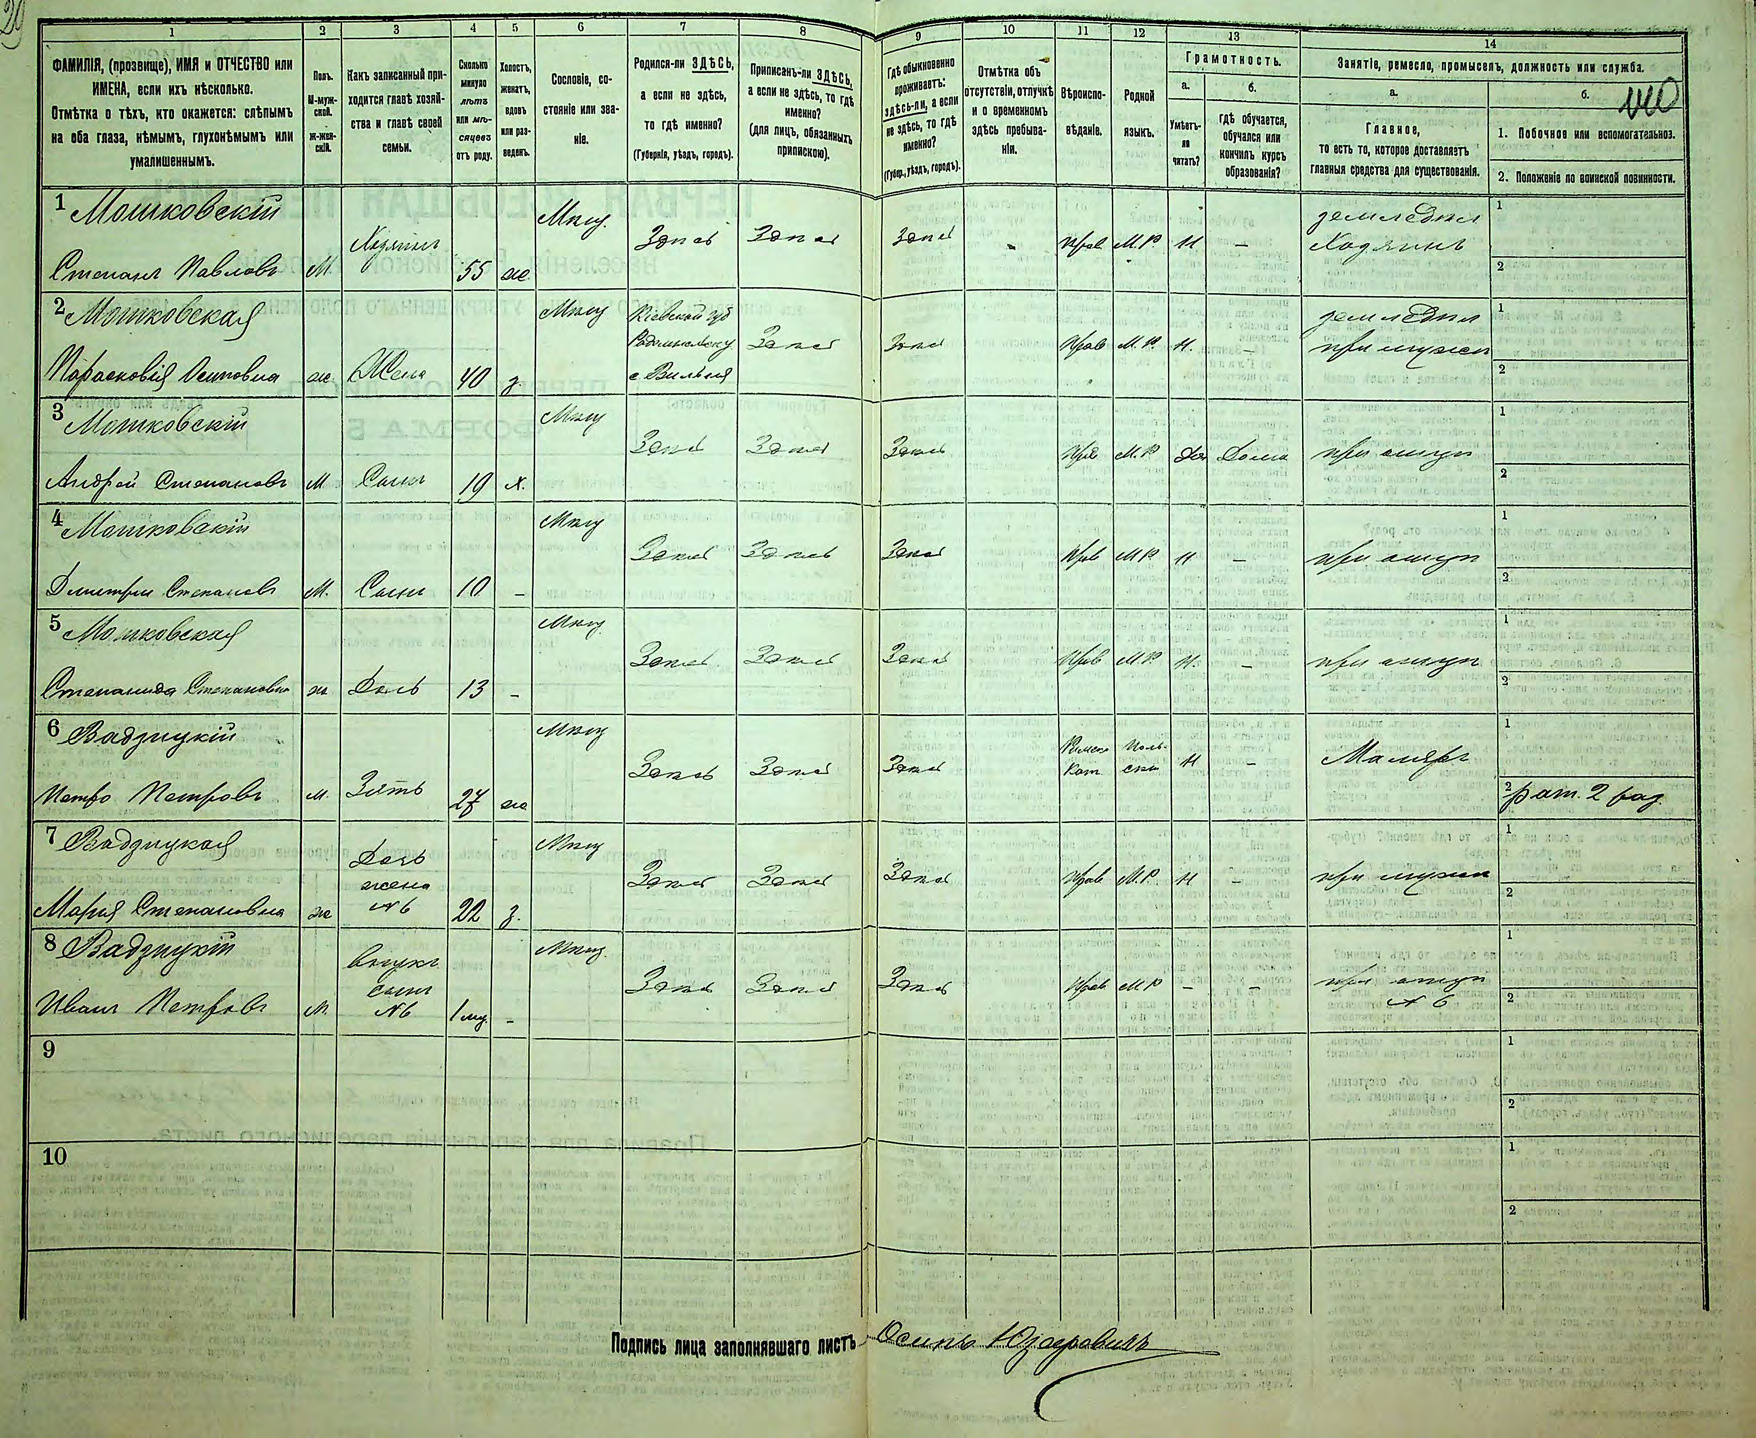 29
1 2 3 4 5 6 7 8 9 10 11 12 13 14
ФАМИЛІЯ, (прозвище), ИМЯ и ОТЧЕСТВО или ИМЕНА, если ихъ нѣсколько.
Отмѣтка о тѣхъ, кто окажется: слѣпымъ на оба глаза, нѣмымъ, глухонѣмымъ или умалишеннымъ.
Полъ. М-мужской. Ж-женскій.
Какъ записанный приходится главѣ хозяйства и главѣ своей семьи.
Сколько минуло лѣтъ или мѣсяцевъ отъ роду.
Холостъ, женатъ, вдовъ или разведенъ.
Сословіе, состояніе или званіе.
Родился-ли ЗДѢСЬ, а если не здѣсь, то гдѣ именно?
(Губернія, уѣздъ, городъ).
Приписанъ-ли ЗДѢСЬ, а если не здѣсь, то гдѣ именно?
(для лицъ, обязанныхъ припискою).
Гдѣ обыкновенно проживаетъ: здѣсь-ли, а если не здѣсь, то гдѣ именно?
(Губер., уѣздъ, городъ).
Отмѣтка объ отсутствіи, отлучкѣ и о временномъ здѣсь пребываніи.
Вѣроисповѣданіе.
Родной языкъ.
Грамотность.
а. Умѣетъ-ли читать?
б. гдѣ обучается, обучался или кончилъ курсъ образованія?
Занятіе, ремесло, промыселъ, должность или служба.
а. Главное, то есть то, которое доставляетъ главныя средства для существованія.
б.
1. Побочное или вспомогательноз.
2. Положеніе по воинской повинности.
1 Мошковскій Мѣщ. земледѣл
Степанъ Павловъ М. Хозяинъ 55 ж Здѣсь Здѣсь Здѣсь Прав М.Р Н — Хозяинъ
1
2
2 Мошковская Мѣщ Кіевской губ земледѣл
Парасковія Осиповна ж Жена 40 з. с Вильня Здѣсь Здѣсь Прав М.Р. Н. — при мужѣ
1
2
3 Мошковскій Мѣщ
Андрей Степановъ М Сынъ 19 х. Здѣсь Здѣсь Здѣсь Прав М.Р да Дома при отцѣ
1
2
4 Мошковскій Мѣщ
Дмитрій Степановъ М. Сынъ 10 — Здѣсь Здѣсь Здѣсь Прав М.Р Н — при отцѣ
1
2
5 Мошковская Мѣщ.
Степанида Степановна ж Дочь 13 — Здѣсь Здѣсь Здѣсь Прав М.Р Н. — при отцѣ
1
2
6 Вадзицкій Мѣщ
Петро Петровъ М. Зять 27 ж Здѣсь Здѣсь Здѣсь Римско Кат Польскій Н — Маляръ
1
2 рат. 2 раз.
7 Вадзицкая Мѣщ
Марія Степановна ж Дочь жена №6 22 з. Здѣсь Здѣсь Здѣсь Прав М.Р. Н — при мужѣ
1
2
8 Вадзицкій Мѣщ.
Иванъ Петровъ М. внукъ сынъ №6 1 мц — Здѣсь Здѣсь Здѣсь Прав М.Р — — при отцѣ № 6
1
2
9
1
2
10
1
2
Подпись лица заполнявшаго листъ Осипъ